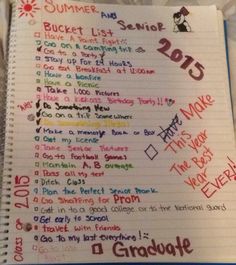 SUMMER
AND
Senior
Bucket List
2015
Have A Paint Fight!!
Go on A camping trip
Go to a Party
Stay up for 24 Hours
Go eat Breakfast at 12:00am
Have a bonfire
Have a Picnic
Take 1,000 Pictures
Have a kickass Birthday Party!!
Do Something New
Go on a trip Somewhere
Make a memorie Book or Box
Get my license
Take Senior Pictures
Go to Football Games
Maintain An B average
Pass all my test
Ditch Class
Plan the Perfect Senior Prank
Go Shopping for Prom
Get in to a good college or to the National guard
Get early to school
travel with Friends
Go to my last everything!
Graduate
Have Make
This Year
The Best
Year
EVER!
2015
Class OF